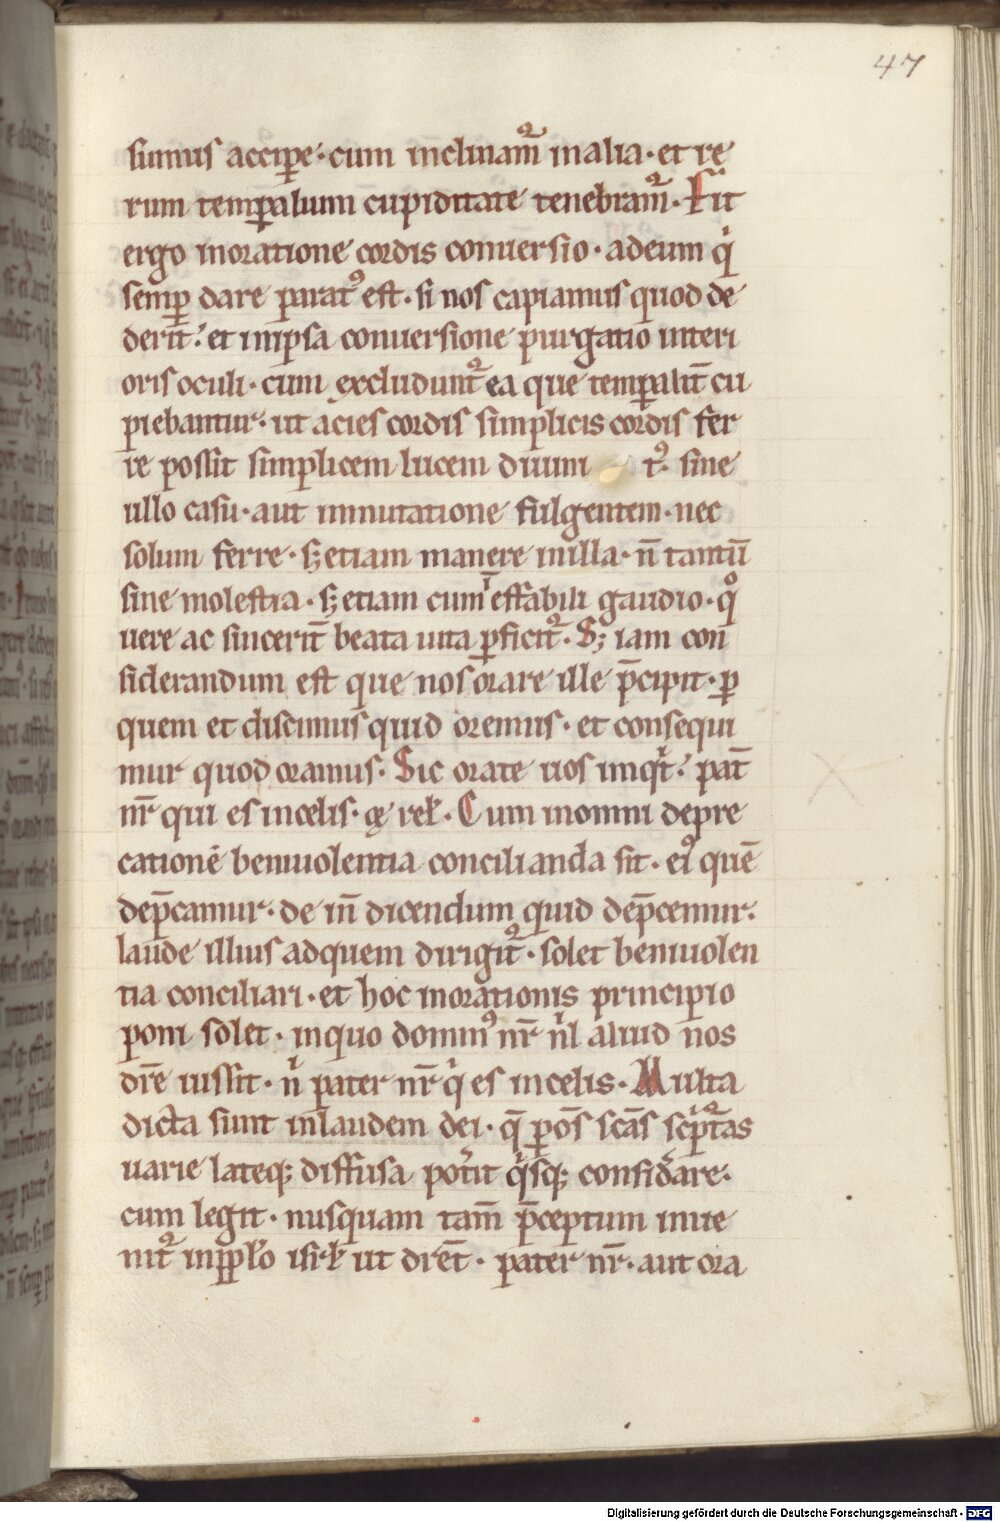 47
simus accipe · cum inclinam᷑ in alia · et re
rum temꝑalium cupiditate tenebram᷑ · Fit
ergo inoratione cordis conuersio · ad eum qͥ
semꝑ dare parat᷒ est · si nos capiamus quod de
derit · et in ipsa conuersione purgatio interi
oris oculi · cum excludunt᷑ ea que temꝑalit̄ cu
piebantur · ut acies cordis simplicis cordis fer
re possit simplicem lucem diuini t᷒ · sine
ullo casu · aut inmutatione fulgentem · nec
solum ferre · sꝫ etiam manere in illa · n̄ tantū
sine molestia · sꝫ etiam cum īeffabili gaudio · qͦ
uere ac sincerit̄ beata uita ꝑficit᷑ · Sꝫ iam con
siderandum est que nos orare ille p̄cipit · ꝑ
quem et discimus quid oremus · et consequi
mur quod oramus · Sic orate uos inqͥt · pat̄
nr̄ qui es in celis · ꝙ rel · Cum in omni depre
catione beniuolentia concilianda sit · ei᷒ quē
dep̄camur · de in̄ dicendum quid dep̄cemur ·
laude illius ad quem dirigit᷑ · solet beniuolen
tia conciliari · et hoc in orationis principio
poni solet · in quo domin᷒ nr̄ nͥl aliud nos
dr̄e iussit · nͥ pater nr̄ qͥ es in celis · Multa
dicta sunt in laudem dei · q̄ ꝑ om̄s scās scͥpt᷑as
uarie lateqꝫ diffusa pot̓it qͥsqꝫ considare ·
cum legit · nusquam tam̄ p̄ceptum inue
nit᷑ in ppl̓o isr̄l ut dr̄et̄ · pater nr̄ · aut ora
Digitalisierung gefördert durch die Deutsche Forschungsgemeinschaft - DFG